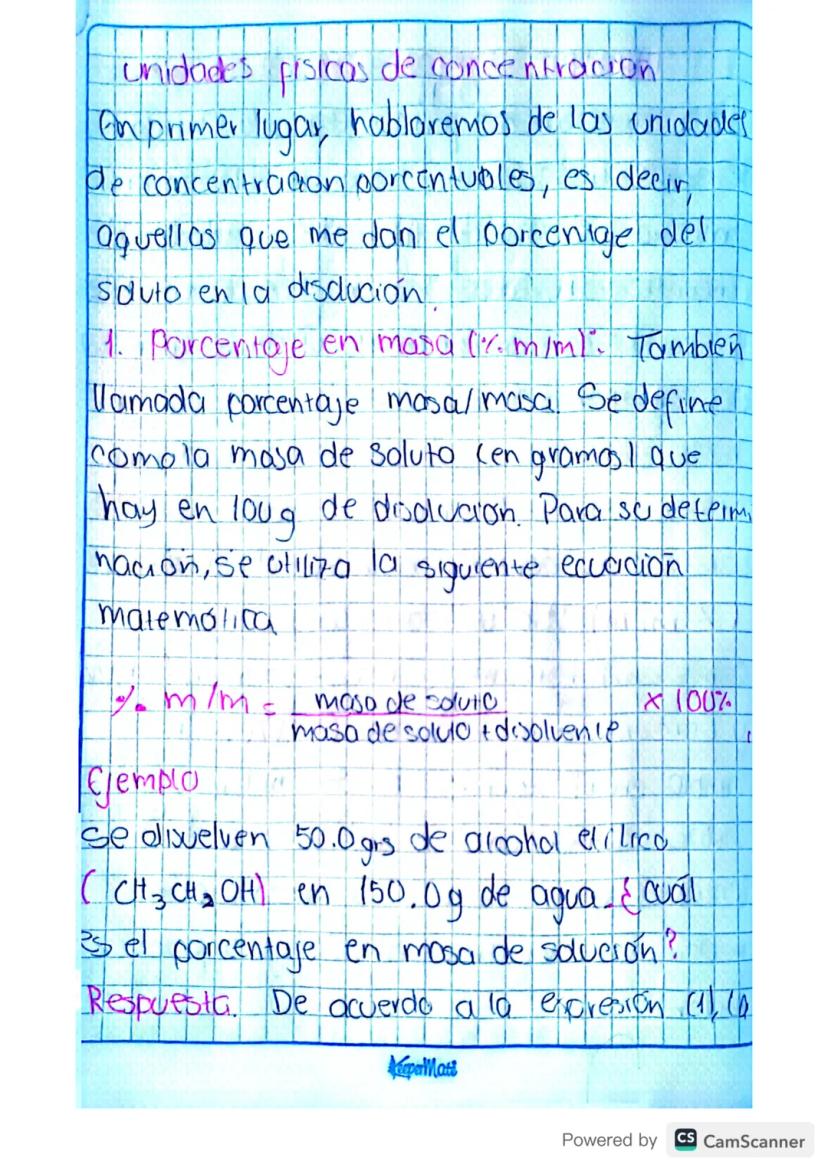 Unidades fisicas de concentración
En primer lugar, hablaremos de las unidades
de concentración porcentuales, es decir,
aquellas que me dan el porcentaje del
soluto en la disolución.
1. Porcentaje en masa (% m/m): También
llamada porcentaje masa/masa. Se define
como la masa de soluto (en gramos) que
hay en 100g de disolución. Para su determi
nación, se utiliza la siguiente ecuación
matemática
% m/m = masa de soluto x 100%
masa de soluto + disolvente
Ejemplo
Se disuelven 50.0grs de alcohol etílico
(CH3CH2OH) en 150.0g de agua. ¿cuál
es el porcentaje en masa de solución?
Respuesta. De acuerdo a la expresión (1), la
KeeperMate
Powered by CS CamScanner